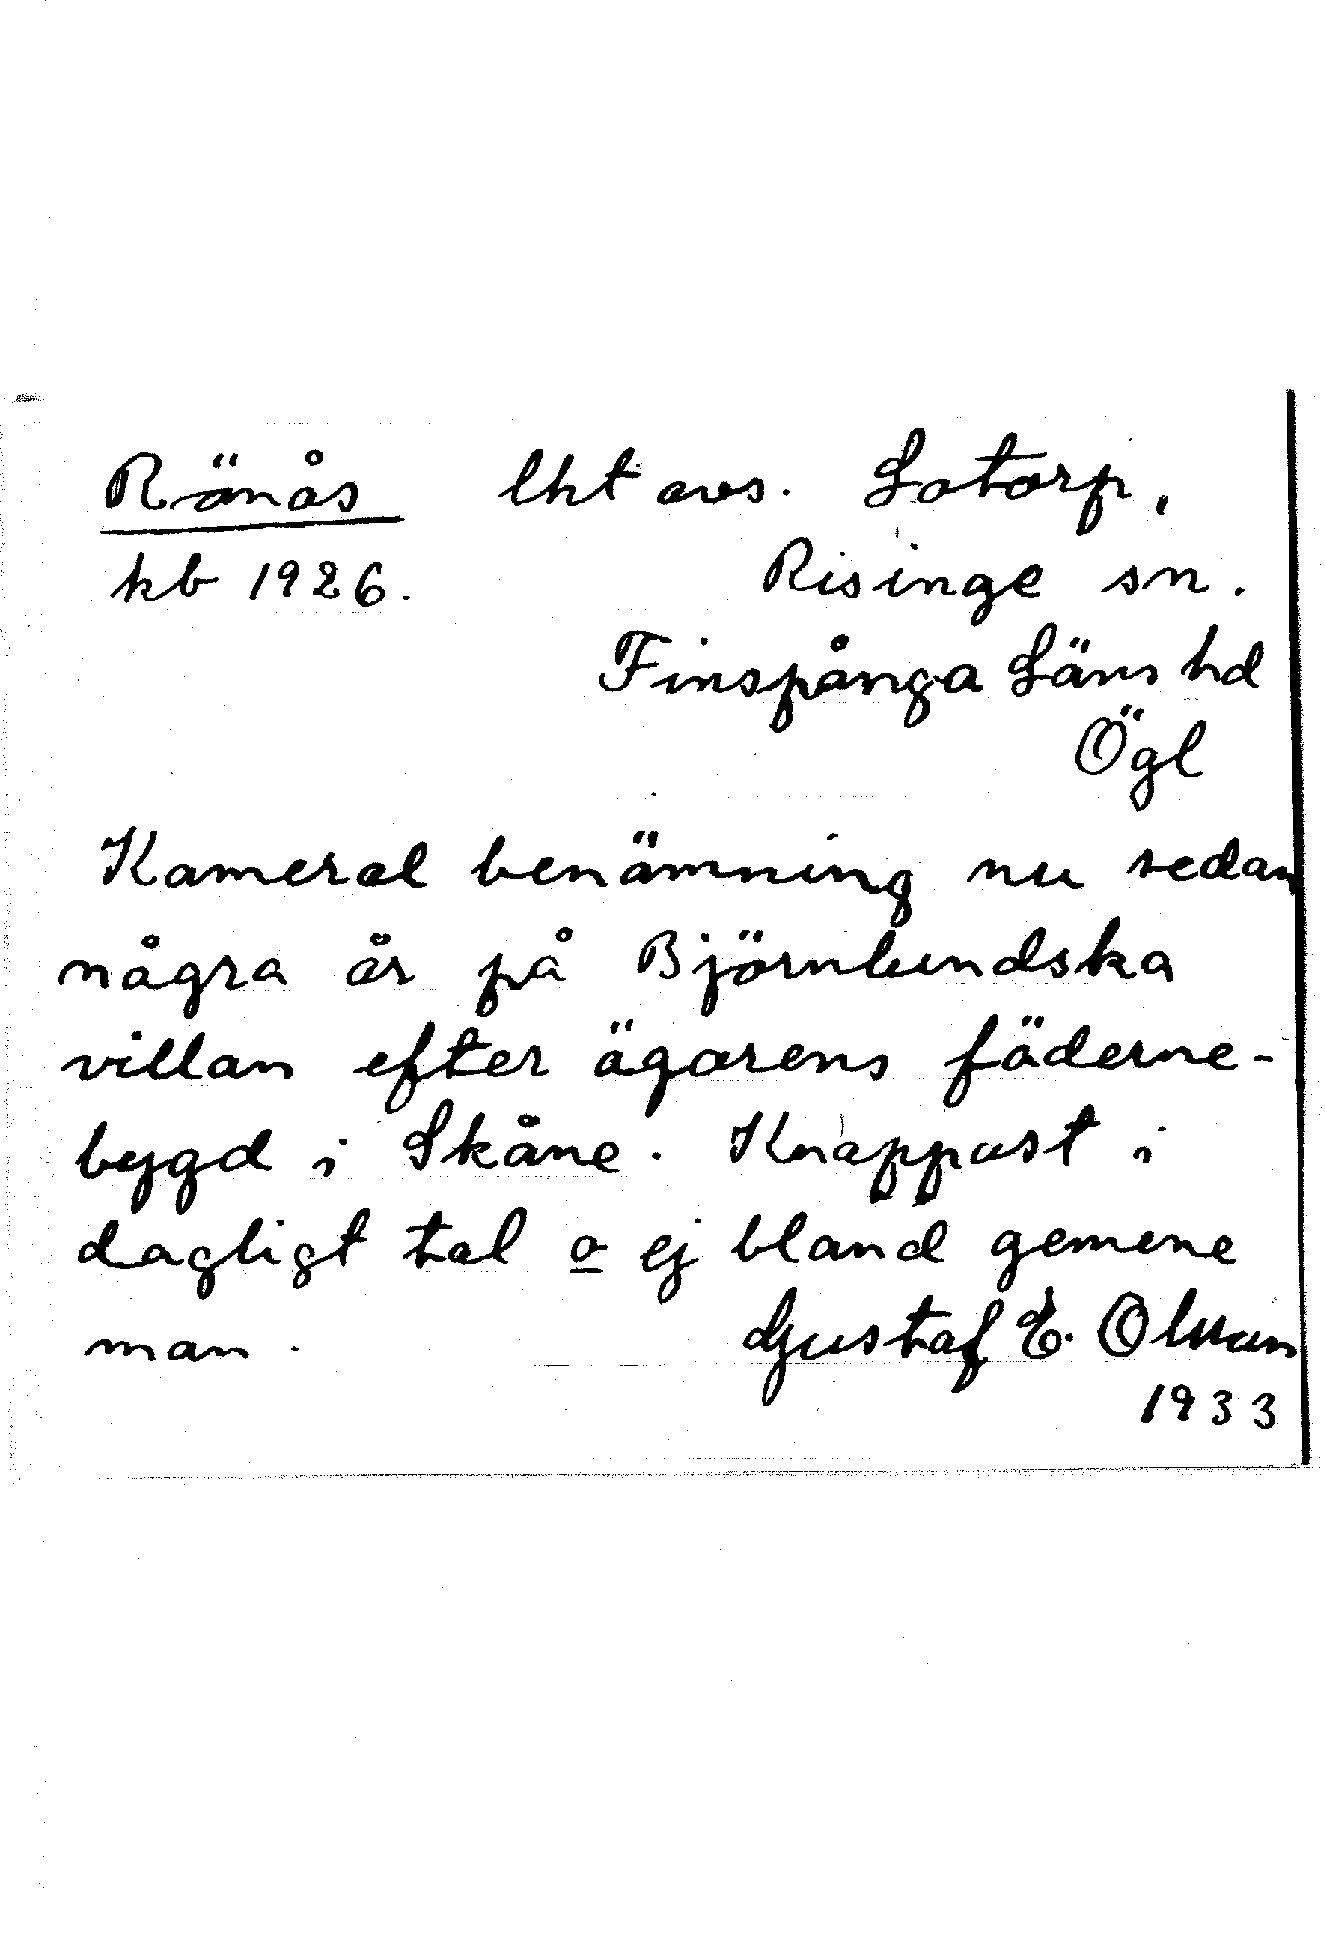 Ränås lht avs. Lotorp,
kb 1926. Risinge sn.
Finspånga Läns hd
Ögl
Kameral benämning nu sedan
några år på Björnlundska
villan efter ägarens fäderne-
bygd i Skåne. Knappast i
dagligt tal o ej bland gemene
man. Gustaf E. Olsson
1933